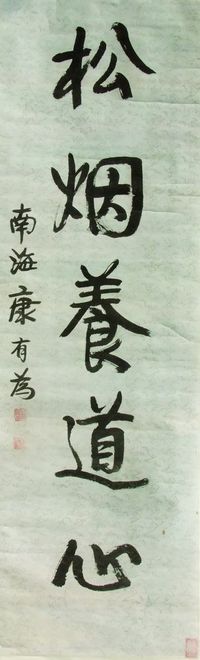 松烟養道心
南海康有為